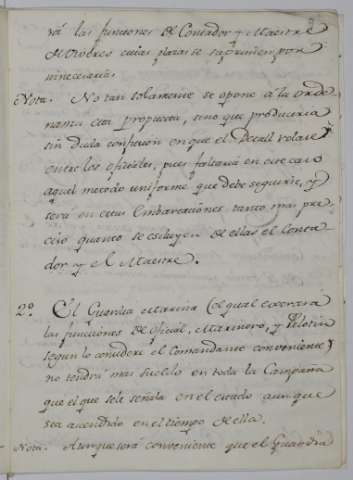 rá las funciones de Contador y Maestre
de Viveres cuias plazas se suprimen por
inecesarias.
Nota. No tan solamente se opone a la orde
nanza esta propuesta, sino que produciria
sin duda confucion en que el Detall volase
entre los oficiales, pues faltaria en ese caso
aquel metodo uniforme que debe seguirse, y
sera en estas Embarcaciones tanto mas pre
ciso quanto se escluyen de ellas el Conta
dor y el Maestre.
2º El Guardia Marina (el qual exercerá
las funciones de oficial, Marinero, y Pilotin
segun lo considere el Comandante conveniente)
no tendrá mas sueldo en toda la Campaña
que el que se le señala en el estado aunque
sea acendido en el tiempo de ella.
Nota. Aunque será conveniente que el Guardia